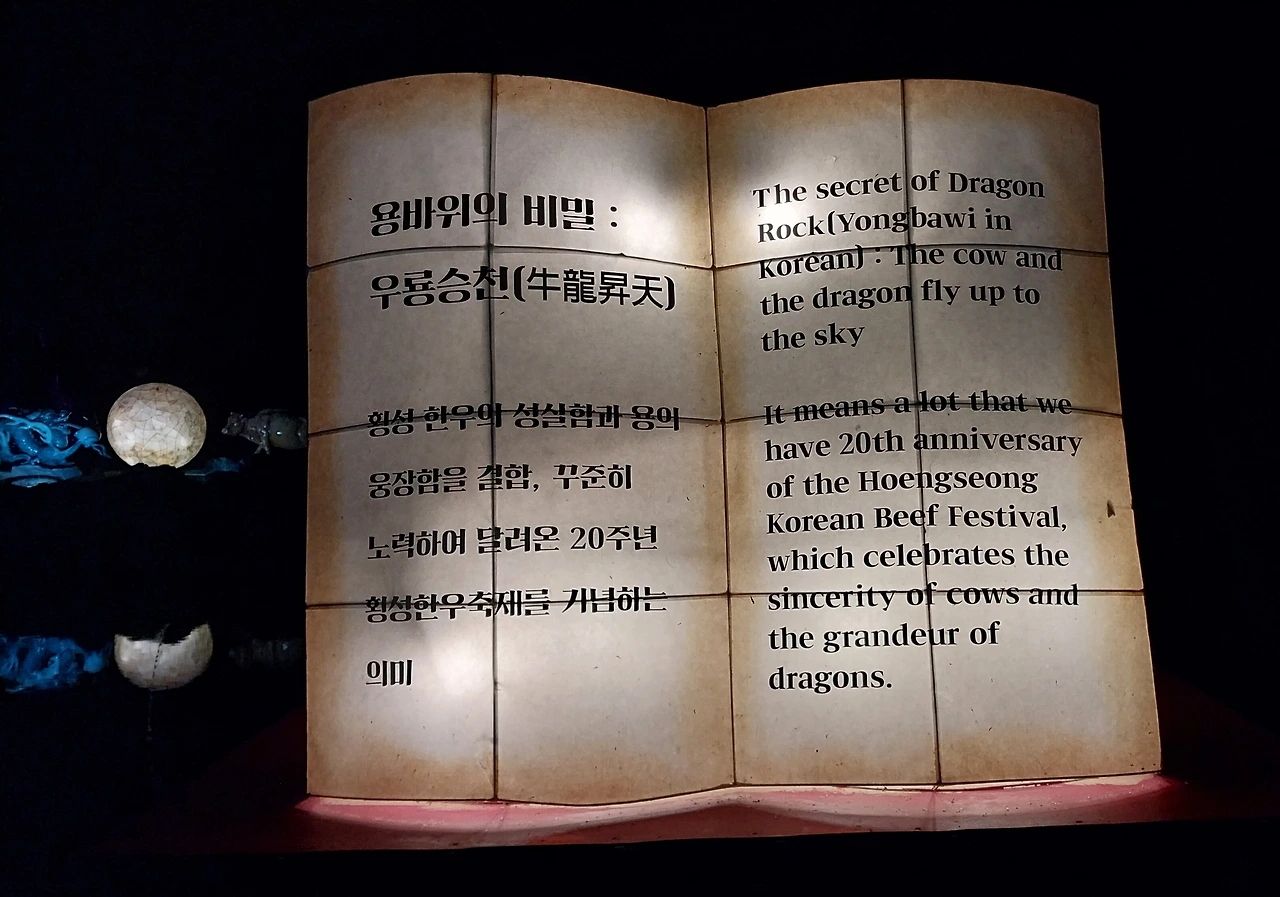 용바위의 비밀 :
우룡승천(牛龍昇天)
횡성 한우의 성실함과 용의
웅장함을 결합, 꾸준히
노력하여 달려온 20주년
횡성한우축제를 기념하는
의미
The secret of Dragon
Rock(Yongbawi in
Korean) : The cow and
the dragon fly up to
the sky
It means a lot that we
have 20th anniversary
of the Hoengseong
Korean Beef Festival,
which celebrates the
sincerity of cows and
the grandeur of
dragons.